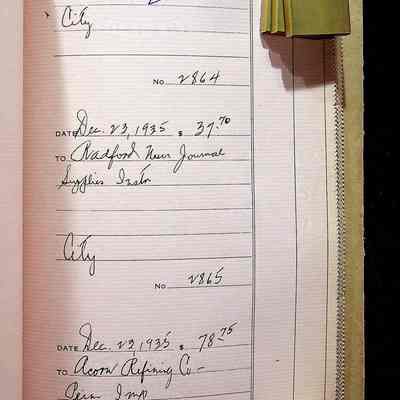 City
No 2864
DATE Dec. 23, 1935 $ 37.70
TO Radford News Journal
Supplies Instr
City
No 2865
DATE Dec. 23, 1935 $ 78.75
TO Acorn Refining Co -
Perm Imp